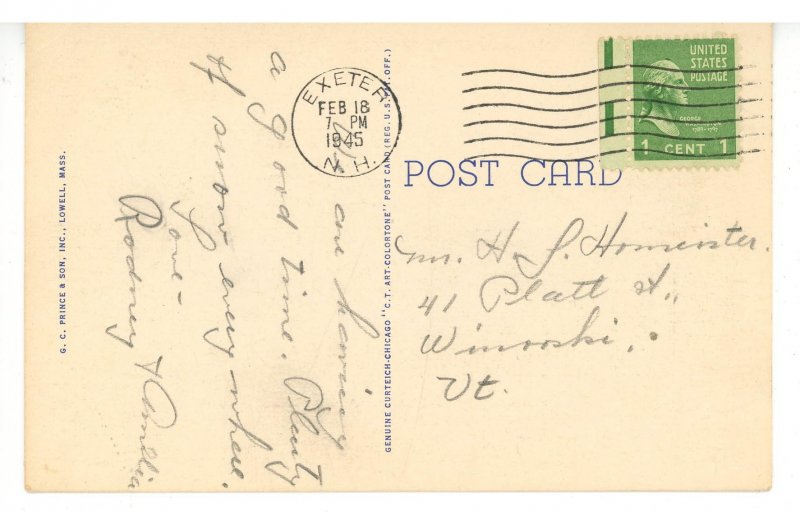 G. C. PRINCE & SON, INC., LOWELL, MASS.
We are having
a good time. Plenty
of snow every where.
Love -
Rodney & Amelia
EXETER
FEB 18
7 PM
1945
N. H.
GENUINE CURTEICH-CHICAGO "C.T. ART-COLORTONE" POST CARD (REG. U.S. PAT. OFF.)
UNITED
STATES
POSTAGE
GEORGE
WASHINGTON
1789-1797
1 CENT 1
POST CARD
Mr. H. J. Homeister.
41 Platt St.,
Winooski,
Vt.